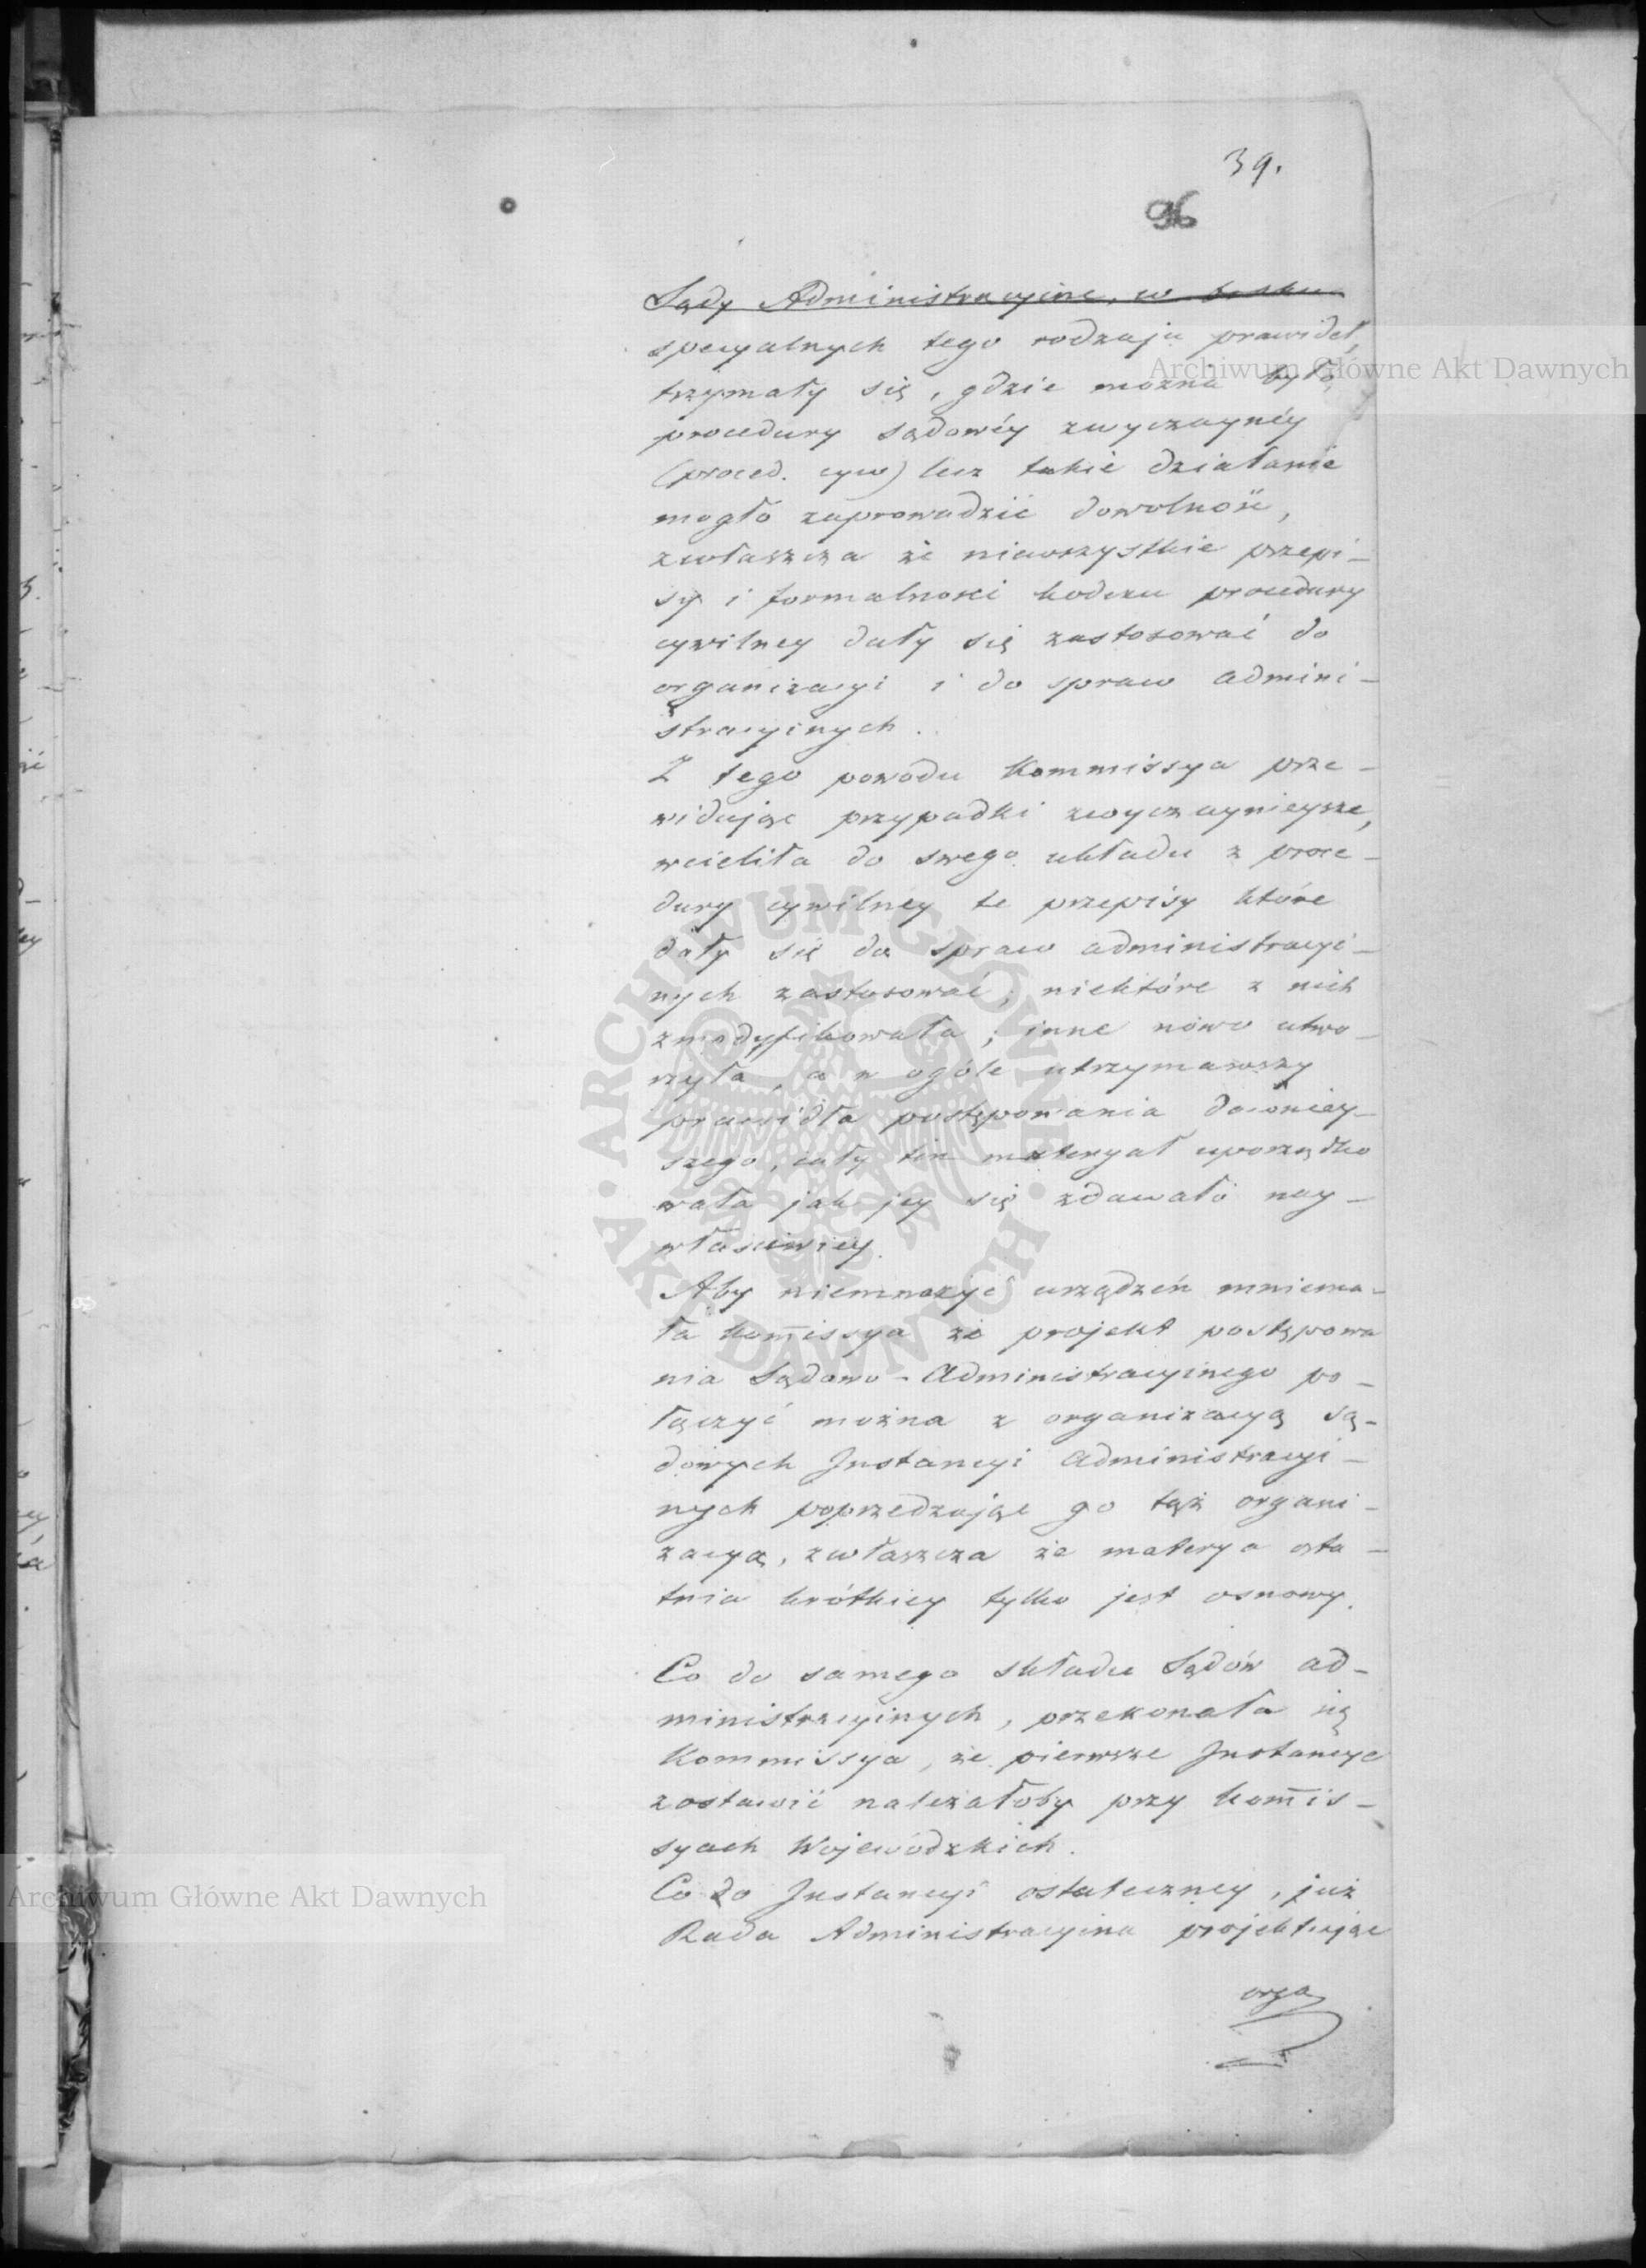 39.
96
Sądy Administracyine, w braku
specyalnych tego rodzaju prawideł,
trzymały się, gdzie można było,
procedury sądowéy zwyczaynéy
(proced. cyw) lecz takie działanie
mogło zaprowadzić dowolność,
zwłaszcza że niewszystkie przepi-
sy i formalności kodexu procedury
cywilney dały się zastosować do
organizacyi i do spraw admini-
stracyinych.
Z tego powodu Kommissya prze-
widując przypadki zwyczaynieysze,
wcieliła do swego układu z proce-
dury cywilney te przepisy które
dały się do spraw administracyi-
nych zastosować; niektóre z nich
zmodyfikowała; inne nowo utwo-
rzyła, a w ogóle utrzymawszy
prawidła postępowania dawniey-
szego, cały ten materyał uporządko
wała jak jey się zdawało nay-
właściwiey.
Aby niemnożyć urządzeń mniema-
ła kom̅issya że projekt postępowa
nia Sądowo-Administracyinego po-
łączyć można z organizacyą są-
dowych Instancyi administracyi-
nych poprzedzając go tąż organi-
zacyą, zwłaszcza że materya osta-
tnia krótkiey tylko jest osnowy.
Co do samego składu Sądów ad-
ministracyinych, przekonała się
Kommissya, że pierwsze Instancye
zostawić należałoby przy kom̅is-
syach Wojewódzkich.
Co do Instancyi ostateczney, już
Rada Administracyina projektując
orga
Archiwum Główne Akt Dawnych
ARCHIWUM GŁÓWNE · AKT DAWNYCH ·
Archiwum Główne Akt Dawnych